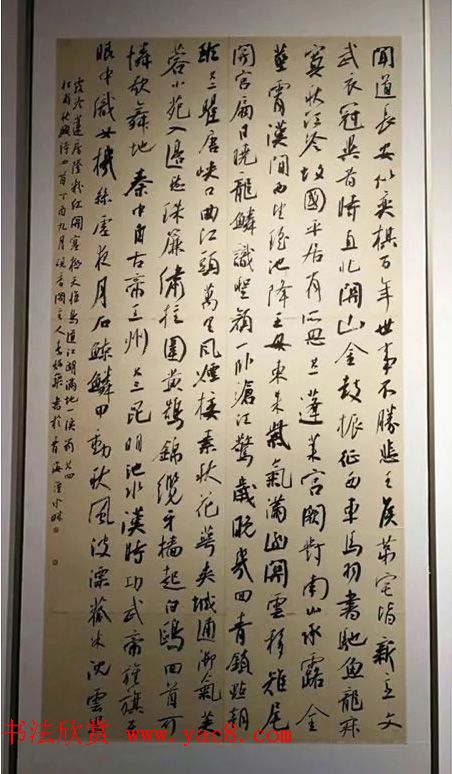 聞道長安似奕棋百年世事不勝悲王侯第宅皆新主文
武衣冠異昔時直北關山金鼓振征西車馬羽書馳魚龍寂
寞秋江冷故國平居有所思 蓬萊宮闕對南山承露金
莖霄漢間西望瑤池降王母東來紫氣滿函關雲移雉尾
開宮扇日曉龍鱗識聖顏一卧滄江驚歲晚幾回青鎖點朝
班 瞿唐峽口曲江頭萬里風煙接素秋花萼夾城通御氣芙
蓉小苑入邊愁珠簾繡柱圍黃鵠錦纜牙檣起白鷗回首可
憐歌舞地秦中自古帝王州 昆明池水漢時功武帝旌旗在
眼中織女機絲虛夜月石鯨鱗甲動秋風波漂菰米沈雲
露冷蓮房墜粉紅關塞極天惟鳥道江湖滿地一漁翁 其四
杜甫秋興詩四首丁酉九月 主人 書於青海
书法欣赏 www.yac8.com